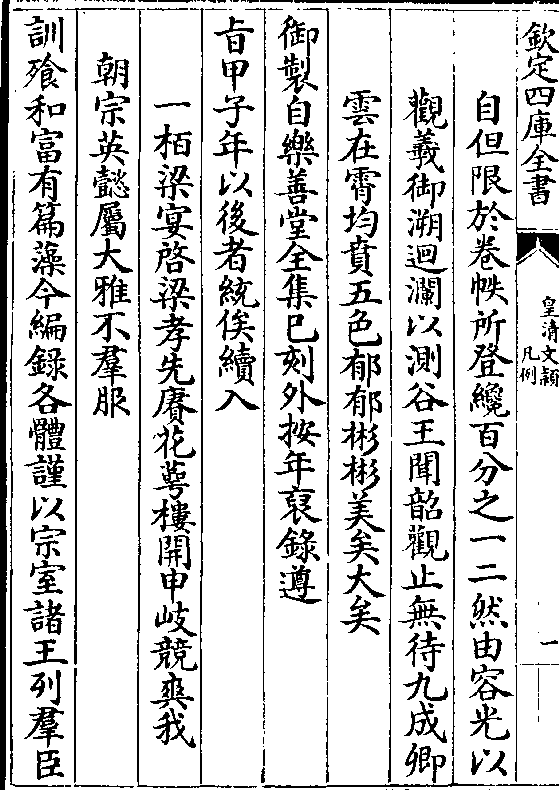 欽定四庫全書
皇清文穎
凡例
一
自但限於卷帙所登纔百分之一二然由容光以
觀羲御溯迴瀾以測谷王聞韶觀止無待九成卿
雲在霄均賁五色郁郁彬彬美矣大矣
御製自樂善堂全集已刻外按年裒錄遵
㫖甲子年以後者統俟續入
一栢梁宴啓梁孝先賡花萼樓開申岐競爽我
朝宗英懿屬大雅不羣服
訓飱和富有篇藻今編錄各體謹以宗室諸王列羣臣